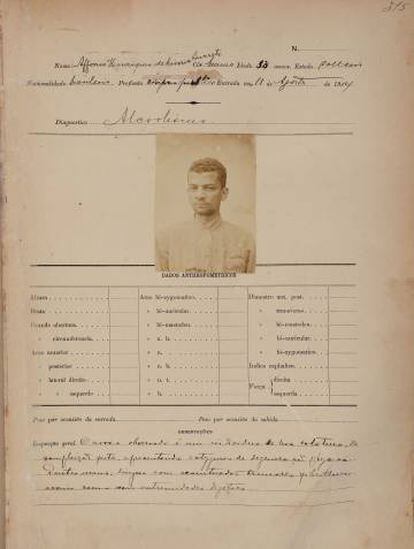 315
N.
Nome Affonso Henriques de Lima Barreto Côr branco Idade 33 annos. Estado solteiro
Nacionalidade brasileira Profissão empr. publico Entrada em 11 de Agosto de 1914
Diagnostico Alcoolismo
DADOS ANTHROPOMETRICOS
Altura Arco bi-zygomatico Diametro ant. post.
Busto » bi-auricular » transverso
Grande abertura » bi-mastoideo » bi-mastoideo
» circumferencia » bi-auricular
Arco anterior » bi-zygomatico
» posterior Indice cephalico
» lateral direito Força direita
» » esquerdo esquerda
Peso por occasião da entrada Peso por occasião da sahida
OBSERVAÇÕES
Inspecção geral O nosso observado é um individuo de boa estatura, de
compleição forte, apresentando estygmas de degeneração physica.
Dentes maus, lingua com tremores fibrillares
assim como nas extremidades digitaes.